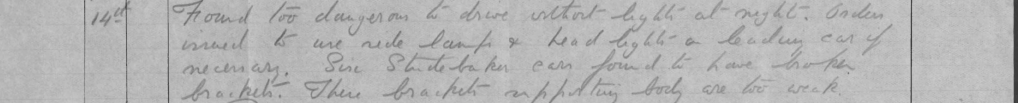 14th Found too dangerous to drive without lights at night. Orders
issued to use side lamps & head lights on leading car if
necessary. Six Studebaker cars found to have broken
brackets. These brackets supporting body are too weak.